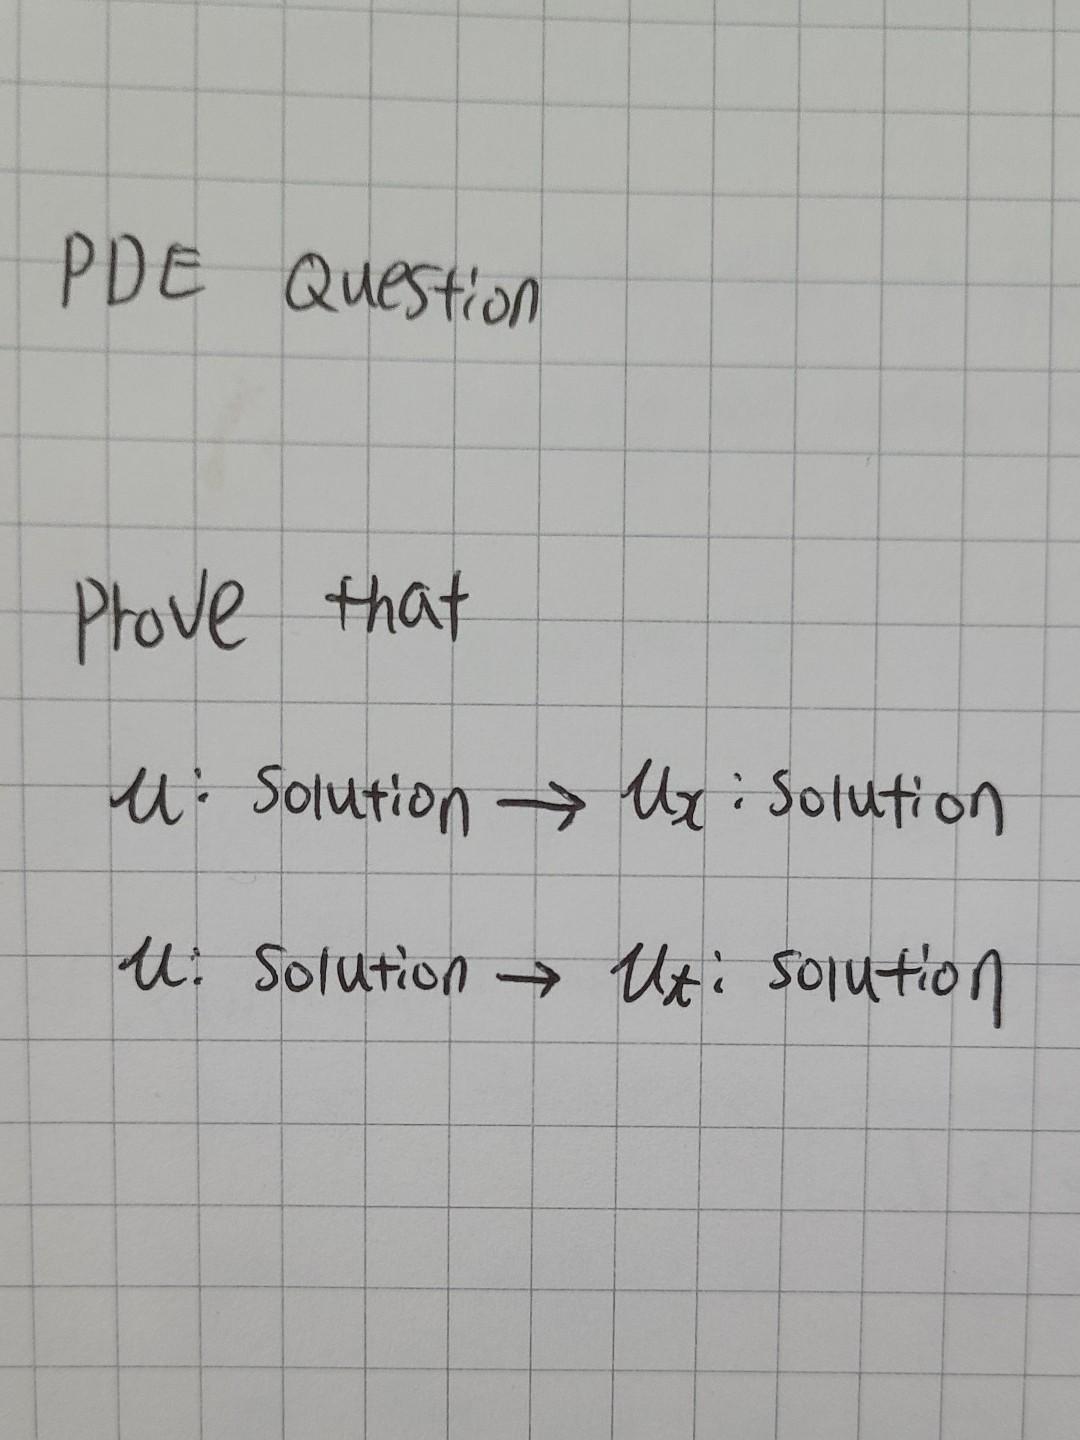 PDE Question
Prove that
u: Solution → uₓ: Solution
u: Solution → uₜ: Solution